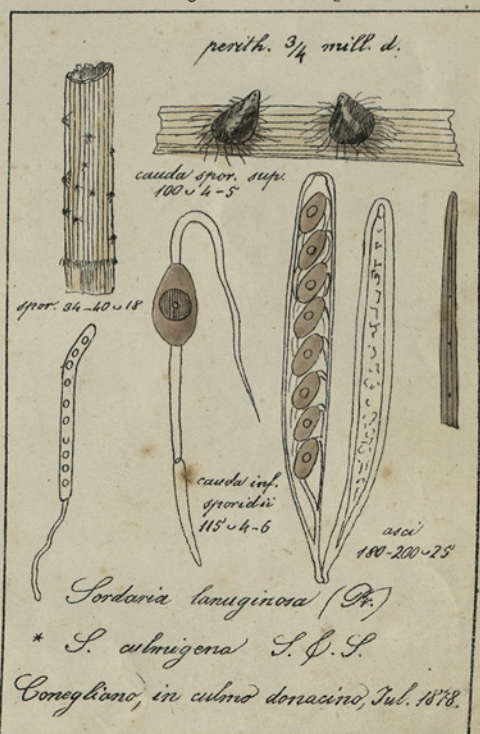 perith. 3/4 mill. d.
cauda spor. sup.
100 ᴗ 4-5
spor. 34-40 ᴗ 18
cauda inf.
sporidii
115 ᴗ 4-6
asci
180-200 ᴗ 25
Sordaria lanuginosa (Pr.)
* S. culmigena S. & S.
Conegliano, in culmo donacino, Jul. 1878.